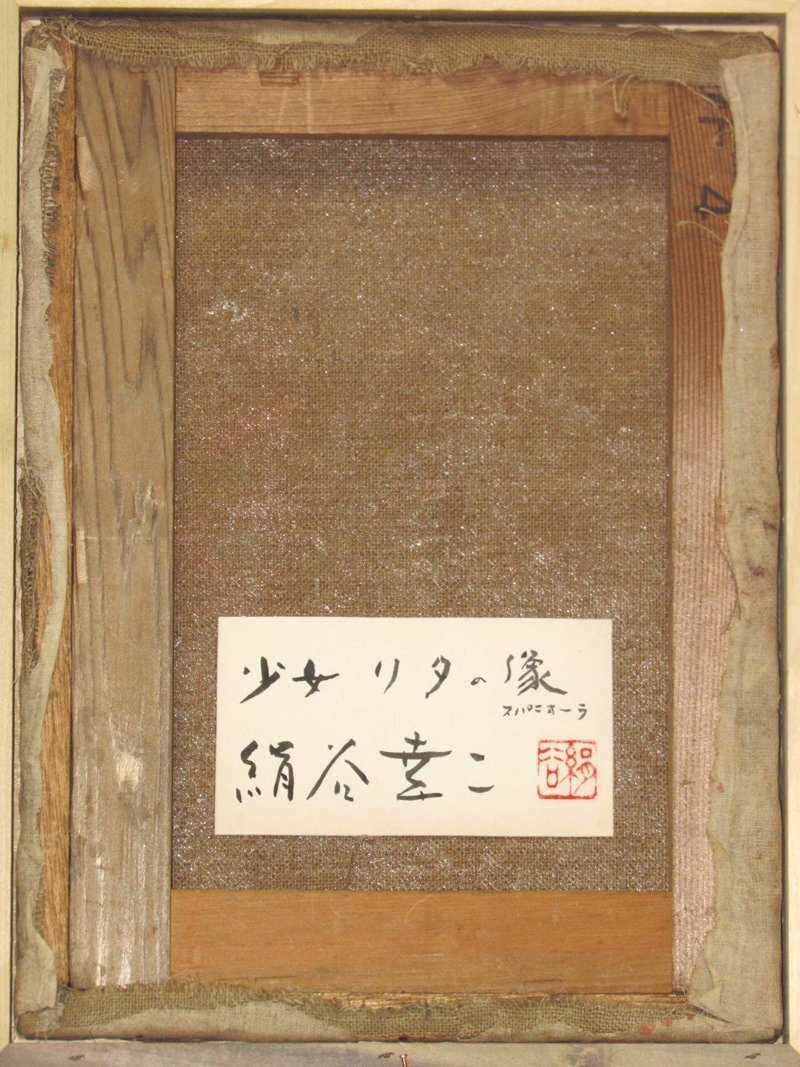 少女 リタの像
スパニオーラ
絹谷幸二
絹谷